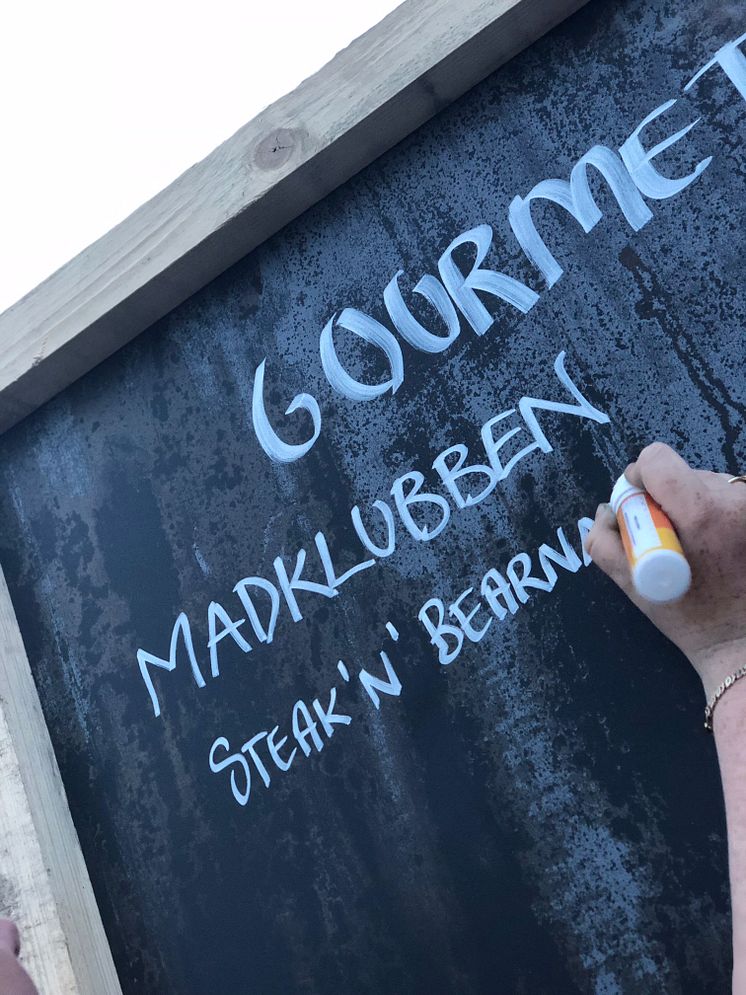 GOURMET
MADKLUBBEN
STEAK'N' BEARNA